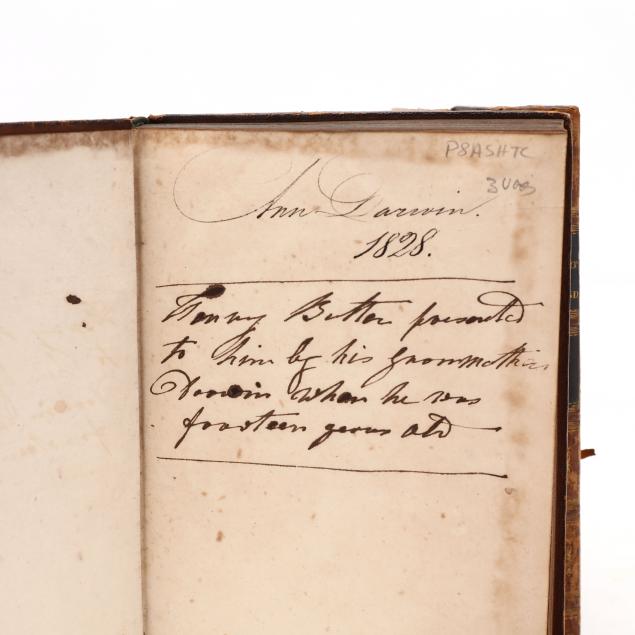 P8ASHTC
3 Vols
Ann Darwin.
1828.
Henry Bitton presented
to him by his Grandmother
Darwin when he was
fourteen years old